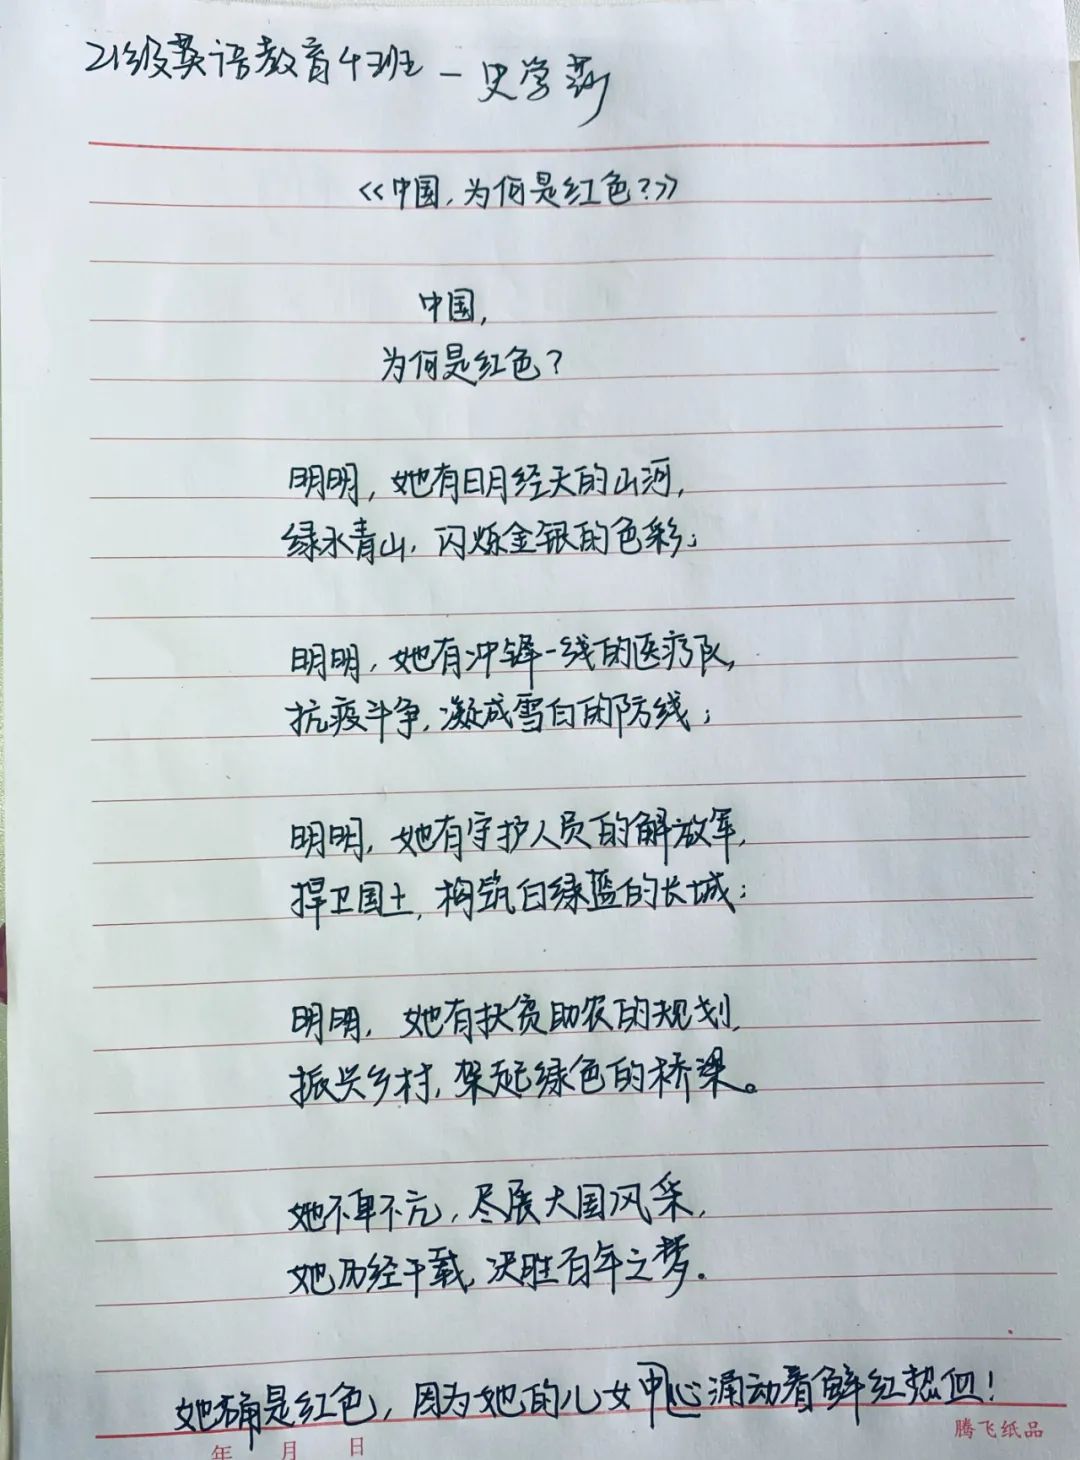 21级英语教育4班-史学莎
《中国,为何是红色?》
中国,
为何是红色?
明明,她有日月经天的山河,
绿水青山,闪烁金银的色彩;
明明,她有冲锋一线的医疗队,
抗疫斗争,凝成雪白的防线;
明明,她有守护人员的解放军,
捍卫国土,构筑白绿蓝的长城;
明明,她有扶贫助农的规划,
振兴乡村,架起绿色的桥梁。
她不卑不亢,尽展大国风采,
她历经千载,决胜百年之梦.
她确是红色,因为她的儿女心涌动着鲜红热血!
年 月 日
腾飞纸品